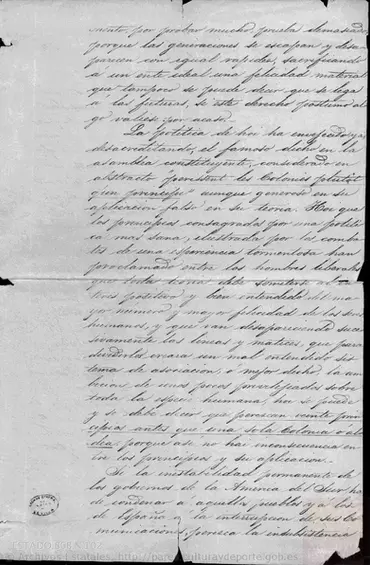 mento, por probar mucho prueba demasiado
porque las generaciones se escapan y desa-
parecen con igual rapidez, sacrificando
á un ente ideal una felicidad material
que tampoco se puede decir que se lega
á las futuras, si este derecho postumo al-
go valiese por acaso.
La politica de hoi ha
desacreditando, el famoso dicho en la
asamblea constituyente, considerado en
abstracto "perissent les Colonies plutôt
qu'un principe" aunque generoso en su
aplicacion falso en su teoria. Hoi que
los principios consagrados por una politi-
ca mas sana, é ilustrada por los comba-
tes de una esperiencia tormentosa han
proclamado entre los hombres liberales
que toda teoria debe someterse al
positivo y bien entendido del ma-
yor numero y mayor felicidad de los seres
humanos, y que van desapareciendo suce-
sivamente las lineas y matices, que para
dividirlos creara un mal entendido sis-
tema de asociacion, ó mejor dicho, la am-
bicion de unos pocos sobre
toda la especie humana, hoi se puede
y se debe decir que perezcan veinte prin-
cipios antes que una sola Colonia ó al-
dea; porque asi no hai inconsecuencia en-
tre los principios y su aplicacion.
Si la inestabilidad permanente de
los gobiernos de la America del Sur ha
de condenar á aquellos pueblos y á los
de España á la interrupcion de sus Co-
municaciones, perezca la insubsistencia